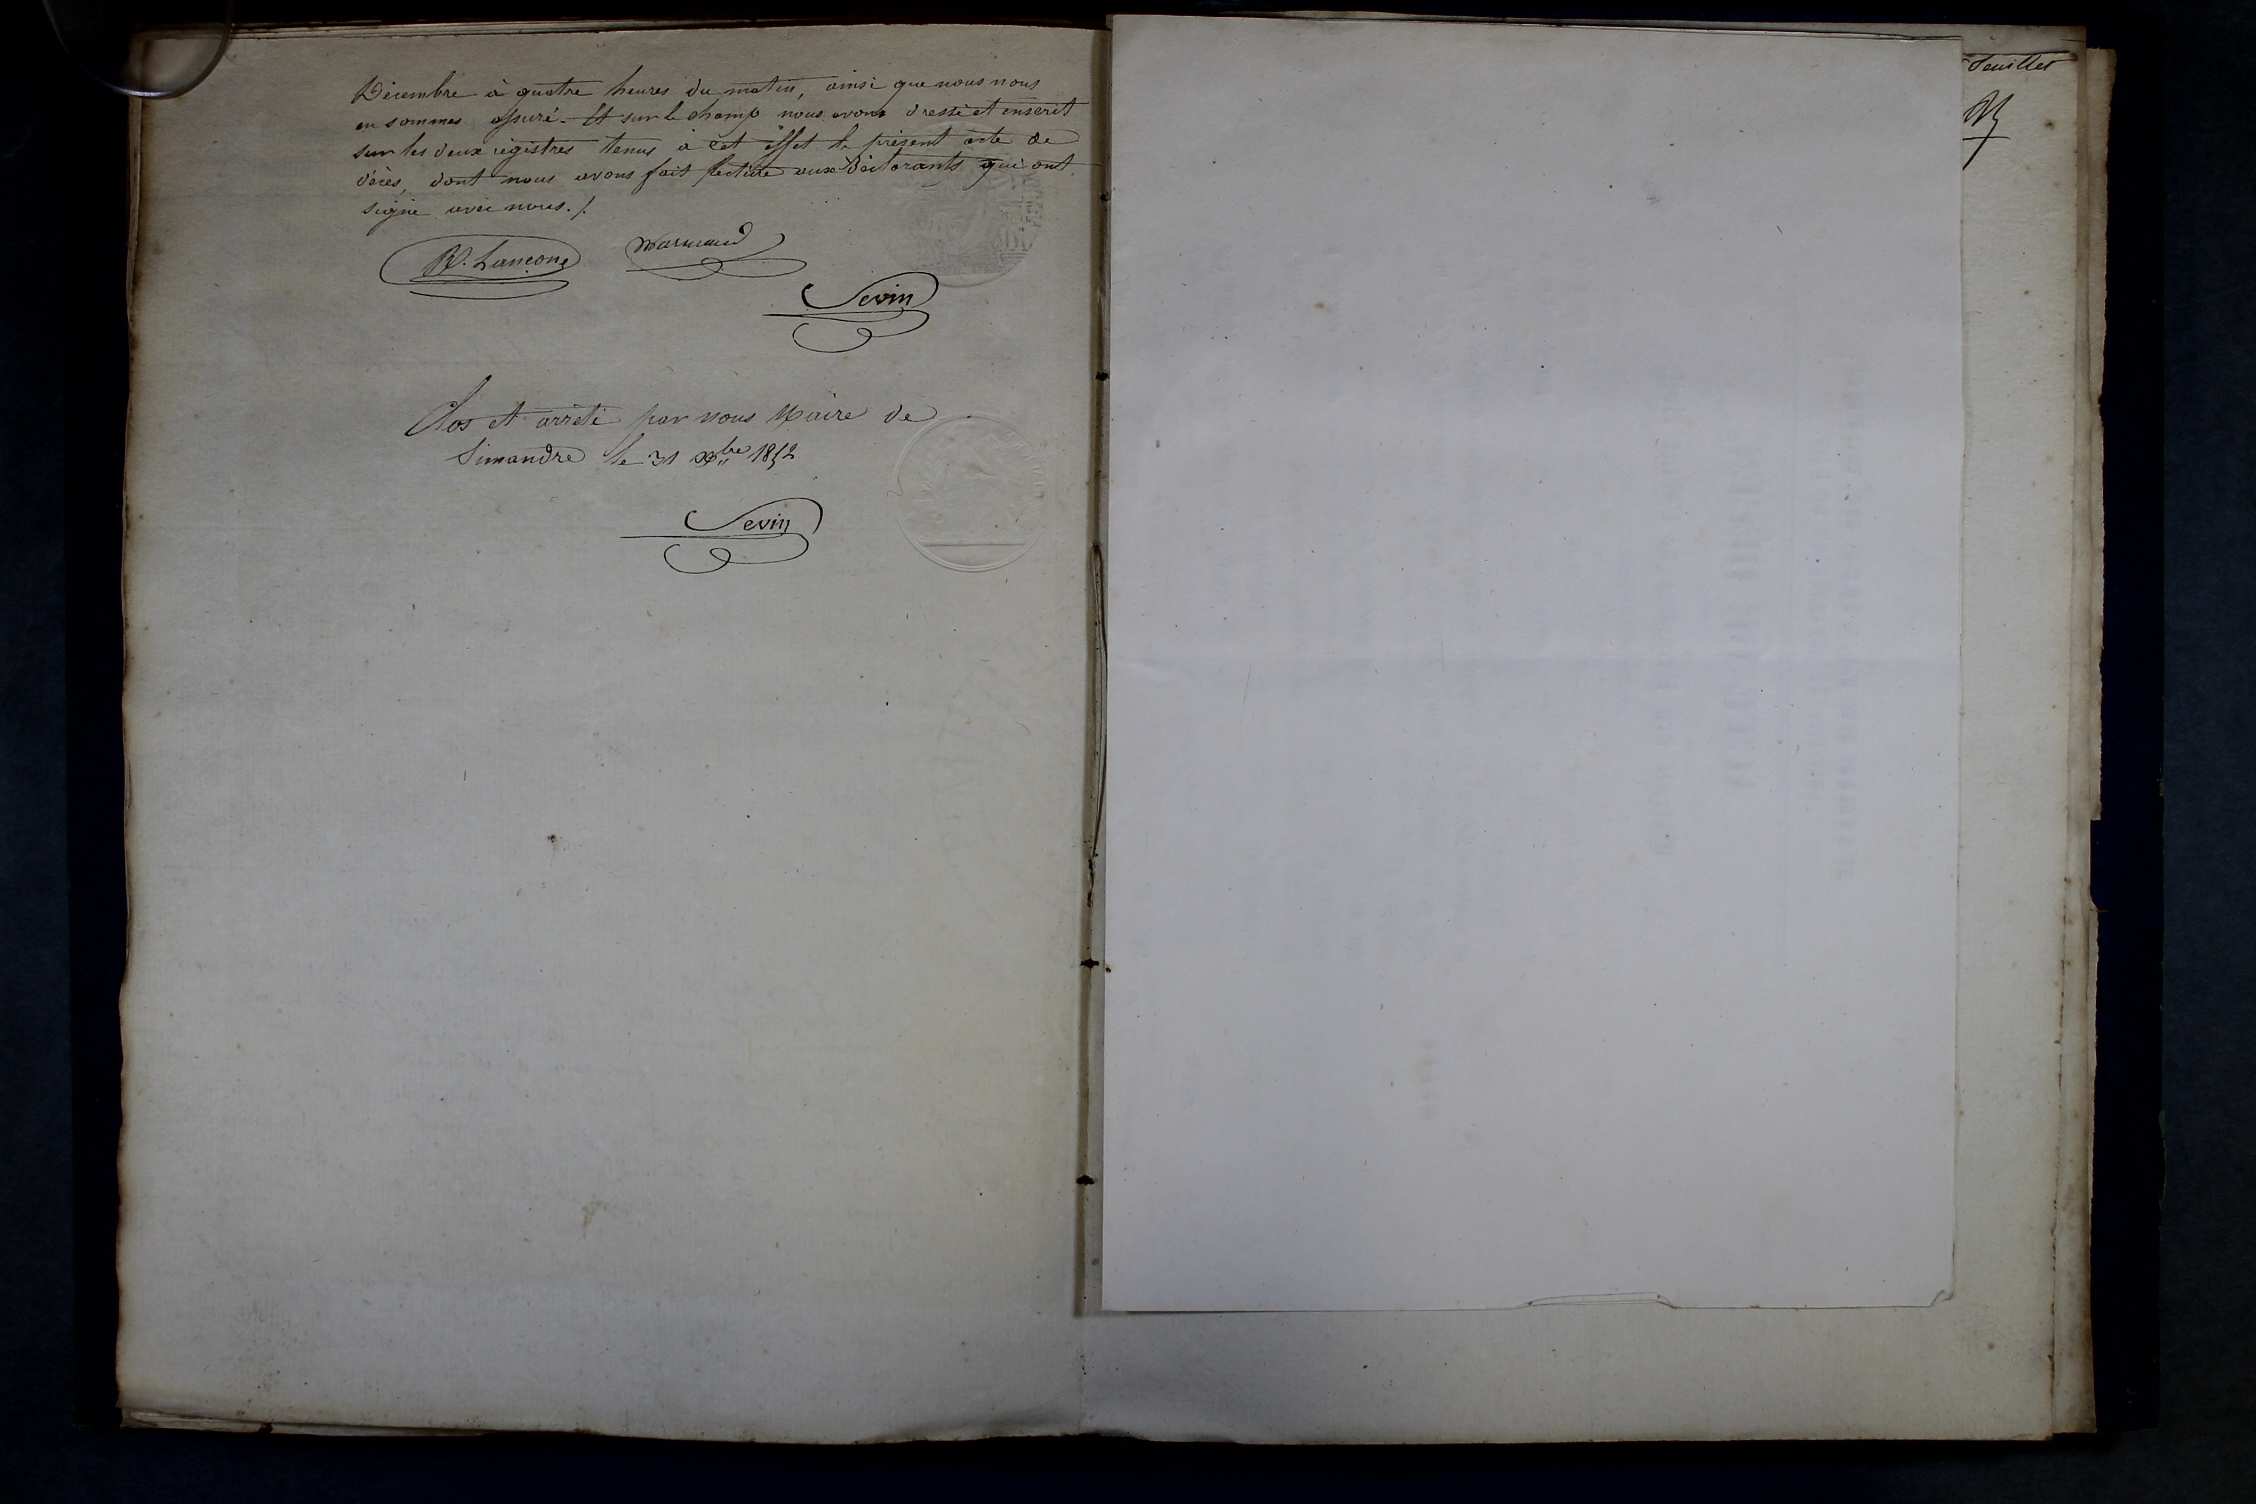 Décembre à quatre heures du matin, ainsi que nous nous
en sommes assuré. Et sur le champ nous avons dressé et inscrit
sur les deux régistres tenus à cet effet le présent acte de
décès, dont nous avons fait lecture aux Déclarants qui ont
signé avec nous./.
Sevin
Clos et arrêté par nous Maire de
Simandre le 31 Xbre 1852
Sevin
feuillet